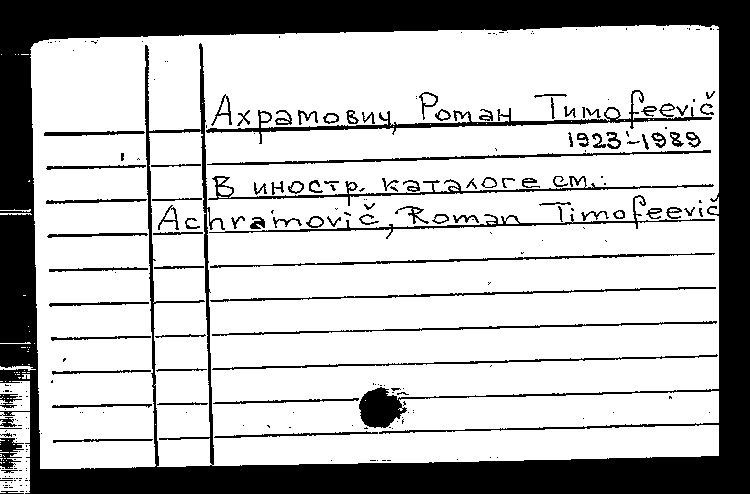 Ахрамович, Роман Тимofeevič
1923-1989
В иностр. каталоге см.:
Achramovič, Roman Timofeevič